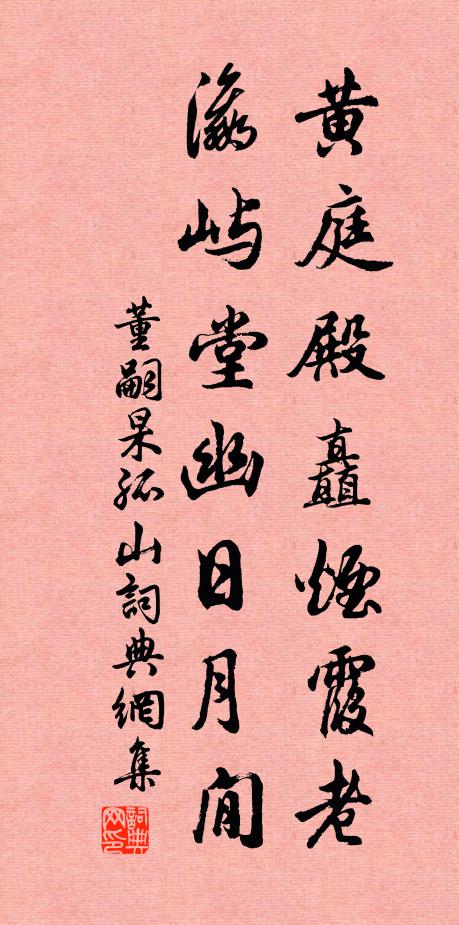 黄庭殿矗煙霞老
瀛屿堂幽日月閒
董嗣杲孤山詞典網集
詞典网印